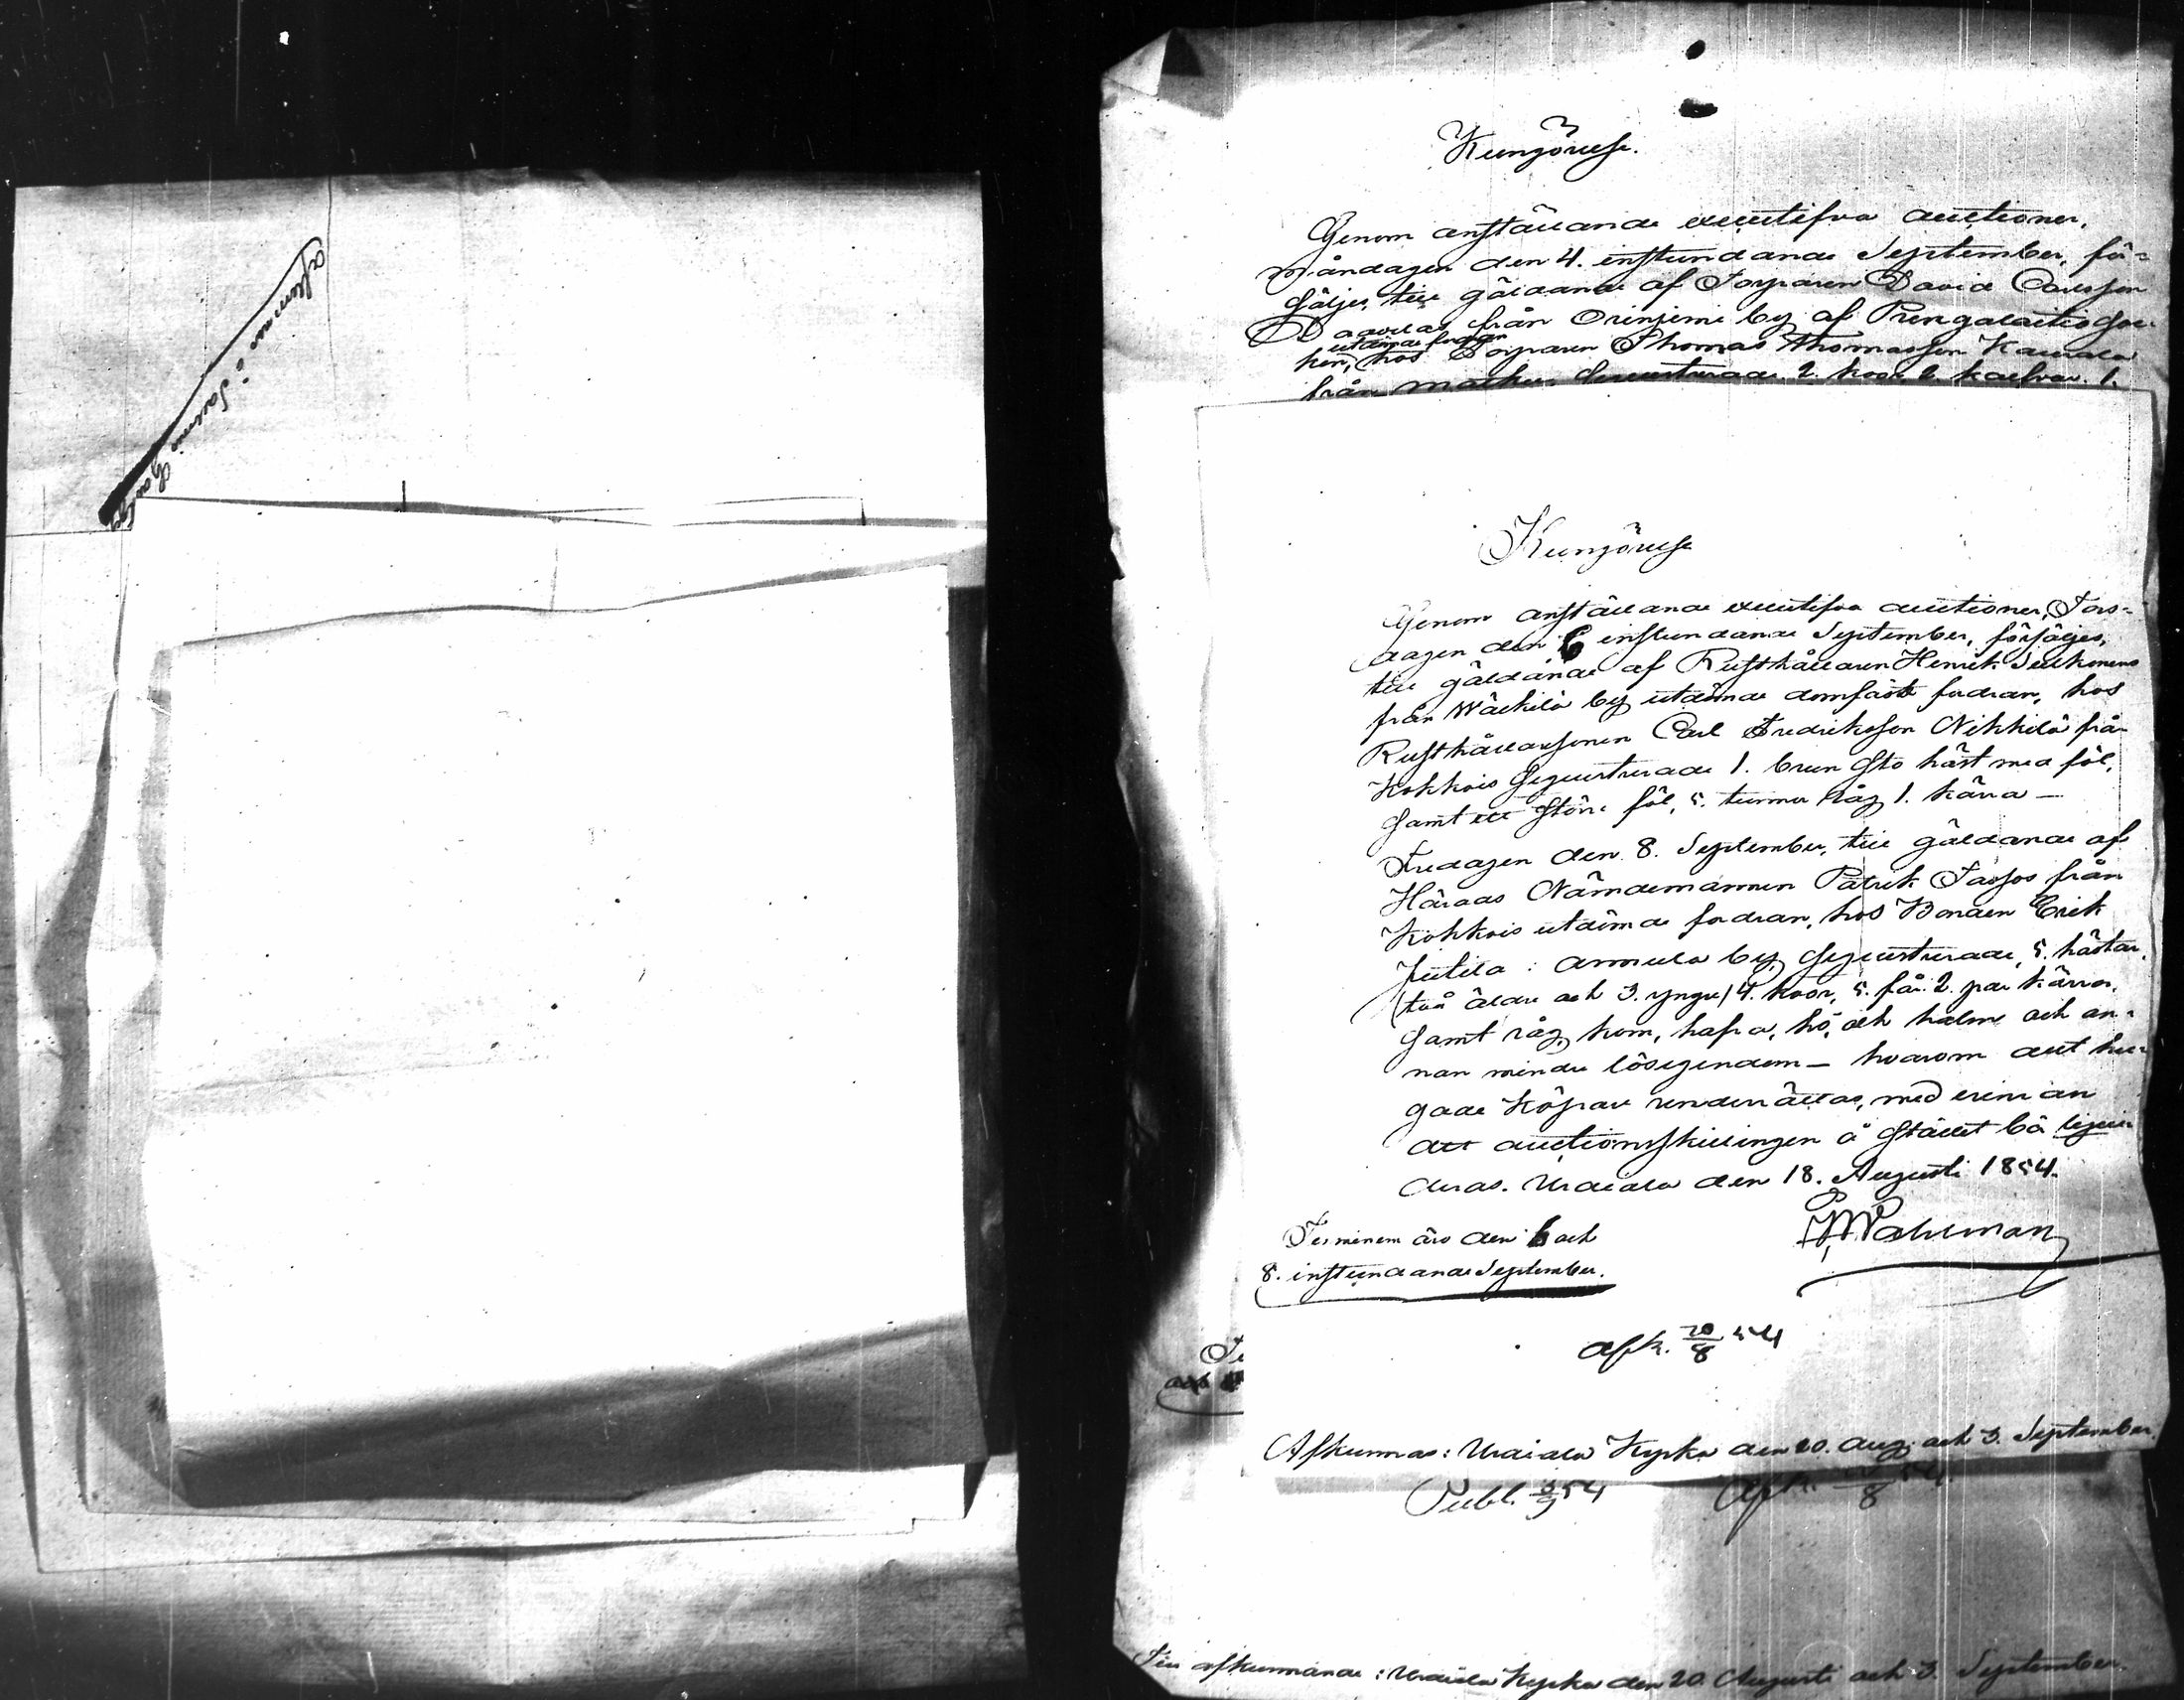 Kungörelse.
Genom anställande executifva auctioner,
måndagen den 4. instundande September, för=
säljes, till gäldande af Torparen David Carlsson
från Orinjemi by af
utdömde fordran
hos Torparen Thomas Thomasson
från sequestrerade 2. koor 2. kalfvar. 1.
Kungörelse
Genom anställande executifva auctioner, Tors=
dagen den 6 instundande September, försäljes,
till gäldande af Rusthållaren Henrik
från Wäckilä by utdömde domfäste fordran, hos
Rusthållaresonen Carl Fredriksson Nikkilä från
Kokkois sequestrerade 1. brun sto häst med föl,
samt ett större föl, 5. tunnor råg 1. kärra —
Fredagen den 8. September, till gäldande af
Härads Nämdemannen Patrik från
Kokkois utdömde fordran, hos Bonden Erik
Jutila i Annula by, sequestrerade, 5. hästar,
(två äldre och 3. yngre) 4. koor, 5. får. 2. par kärror,
samt råg, korn, hafra, hö, och halm och an=
nan mindre lösegendom — hvarom det hu=
gade köpare underrättas, med erinran
att auctionsskillingen å stället bör liqvi=
deras. Urdiala den 18. Augusti 1854.
Wahlman
Terminen äro den 6 och
8. instundande September.
afk. 20/8 54
Afkunnas i Urdiala Kyrka den 20. Aug. och 3. September.
Publ. 3/9 54
Till afkunnande i Urdiala Kyrka den 20. Augusti och 3. September.